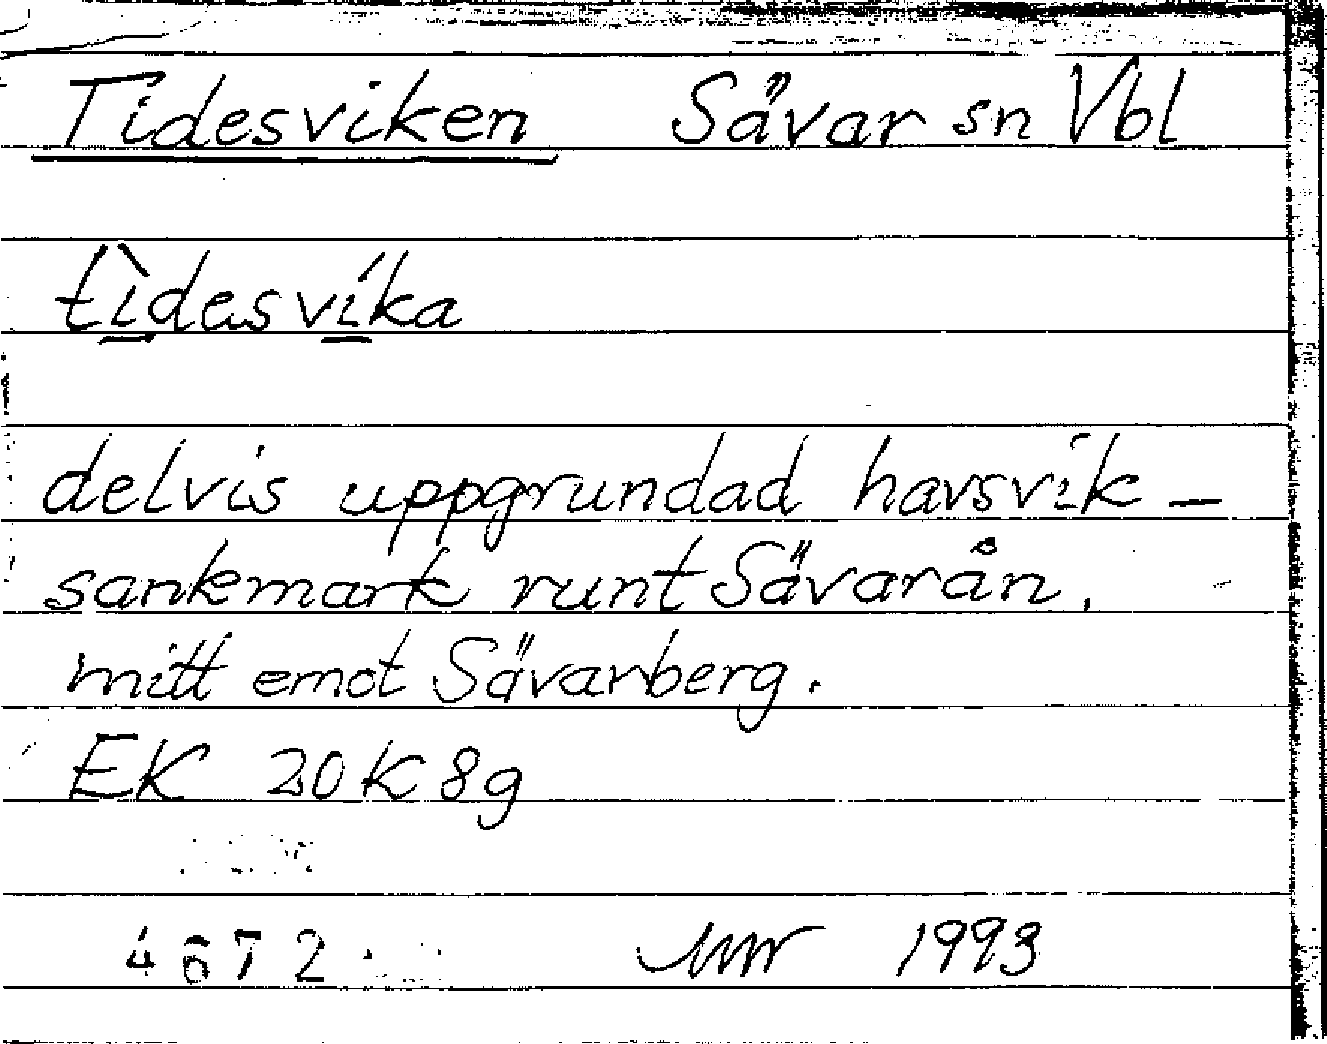 Tidesviken Sävar sn Vbl
tìdesvíka
delvis uppgrundad havsvik –
sankmark runt Sävarån,
mitt emot Sävarberg.
EK 20K 8g
4672 1993